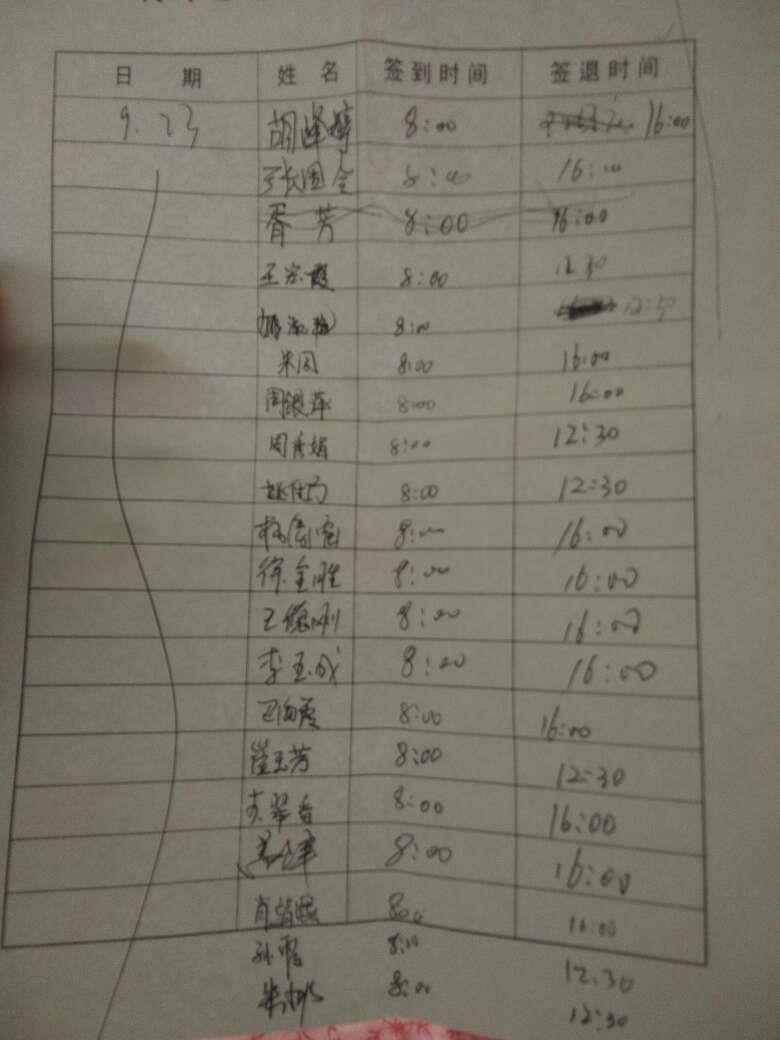 日 期 姓 名 签到时间 签退时间
9.23 胡 8:00 16:00
张国全 8:00 16:00
胥芳 8:00 16:00
王 霞 8:00 12:30
8:00 12:30
朱闪 8:00 16:00
周银萍 8:00 16:00
周秀娟 8:00 12:30
8:00 12:30
杨 8:00 16:00
徐金胜 8:00 16:00
王俊刚 8:00 16:00
李玉成 8:00 16:00
卫海霞 8:00 16:00
崔玉芳 8:00 12:30
翠香 8:00 16:00
8:00 16:00
肖 8:00 16:00
孙雪 8:00 12:30
朱 8:00 12:30